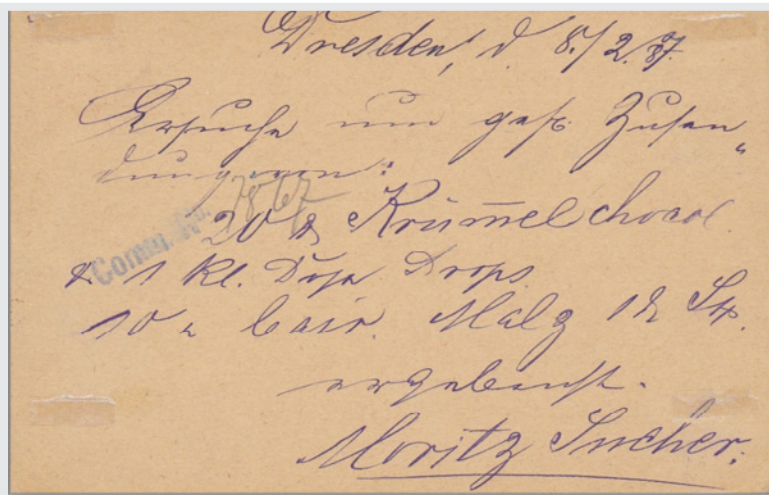 Dresden, d. 8./2.87.
Ersuche um gefl. Zusen„
dung von:
Comm. No. 7867
20 ℔ Krümelchocol.
& 1 kl. Dose Drops
10 „ bair. Malz 1 ℔
ergebenst.
Moritz Sucher.